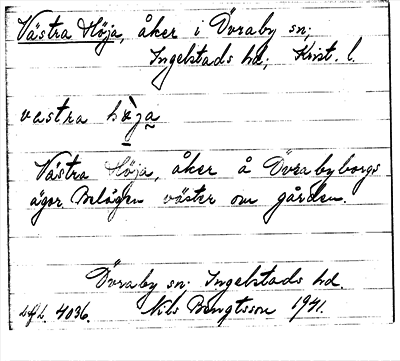 Västra Höja, åker i Övraby sn;
Ingelstads hd; Krist. l.
vastra höja
Västra Höja, åker å Övrabyborgs
ägor Belägen väster om gården.
Övraby sn; Ingelstads hd.
Nils Bengtsson 1941.
4036.